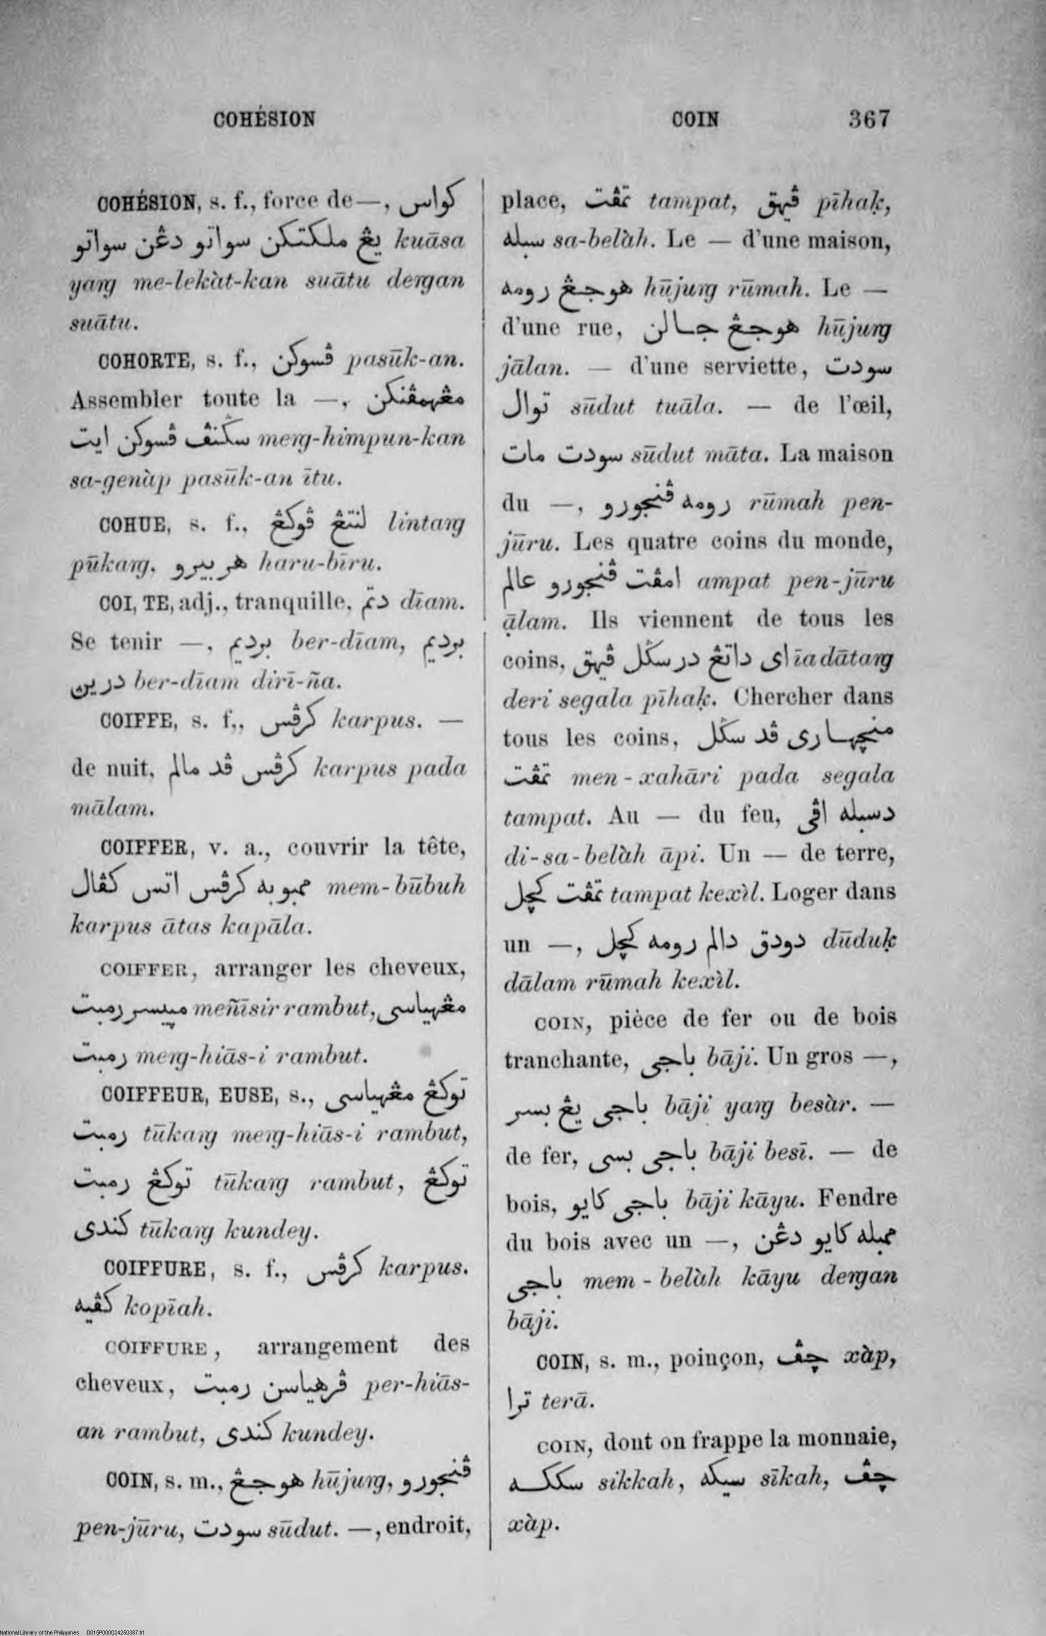 COHÉSION
COIN 367
COHÉSION, s. f., force de —, كواس
يڠ ملكتكن سواتو دڠن سواتو kuāsa
yaŋ me-lekàt-kan suātu deŋan
suātu.
COHORTE, s. f., ڤسوكن pasūk-an.
Assembler toute la —, مڠهمڤنكن
سگنڤ ڤسوكن ايت meŋ-himpun-kan
sa-genàp pasūk-an ītu.
COHUE, s. f., لنتڠ ڤوكڠ lintaŋ
pūkaŋ, هر بيرو haru-bīru.
COI, TE, adj., tranquille, ديم dīam.
Se tenir —, برديم ber-dīam, برديم
درين ber-dīam dirī-ña.
COIFFE, s. f., كرڤس karpus. —
de nuit, كرڤس ڤد مالم karpus pada
mālam.
COIFFER, v. a., couvrir la tête,
ممبوبه كرڤس اتس كڤال mem-būbuh
karpus ātas kapāla.
COIFFER, arranger les cheveux,
مپيسر رمبت meñīsir rambut, مڠهياسى
رمبت meŋ-hiās-i rambut.
COIFFEUR, EUSE, s., توكڠ مڠهياسى
رمبت tūkaŋ meŋ-hiās-i rambut,
توكڠ رمبت tūkaŋ rambut, توكڠ
كندى tūkaŋ kundey.
COIFFURE, s. f., كرڤس karpus.
كڤيه kopīah.
COIFFURE, arrangement des
cheveux, ڤرهياسن رمبت per-hiās-
an rambut, كندى kundey.
COIN, s. m., هوجڠ hūjuŋ, ڤنجورو
pen-jūru, سودت sūdut. —, endroit,
place, تمڤت tampat, ڤيهق pīhaḳ,
سبله sa-belàh. Le — d'une maison,
هوجڠ رومه hūjuŋ rūmah. Le —
d'une rue, هوجڠ جالن hūjuŋ
jālan. — d'une serviette, سودت
توال sūdut tuāla. — de l'œil,
سودت مات sūdut māta. La maison
du —, رومه ڤنجورو rūmah pen-
jūru. Les quatre coins du monde,
امڤت ڤنجورو عالم ampat pen-jūru
ạ̄lam. Ils viennent de tous les
coins, اى داتڠ در سگل ڤيهق īa dātaŋ
deri segala pīhaḳ. Chercher dans
tous les coins, منچهارى ڤد سگل
تمڤت men-xahāri pada segala
tampat. Au — du feu, دسبله اڤى
di-sa-belàh āpi. Un — de terre,
تمڤت كچل tampat kexìl. Loger dans
un —, دودق دالم رومه كچل dūduḳ
dālam rūmah kexìl.
COIN, pièce de fer ou de bois
tranchante, باجى bāji. Un gros —,
باجى يڠ بسر bāji yaŋ besàr. —
de fer, باجى بسى bāji besī. — de
bois, باجى كايو bāji kāyu. Fendre
du bois avec un —, ممبله كايو دڠن
باجى mem-belàh kāyu deŋan
bāji.
COIN, s. m., poinçon, چڤ xàp,
ترا terā.
COIN, dont on frappe la monnaie,
سككه sikkah, سيكه sīkah, چڤ
xàp.
National Library of the Philippines